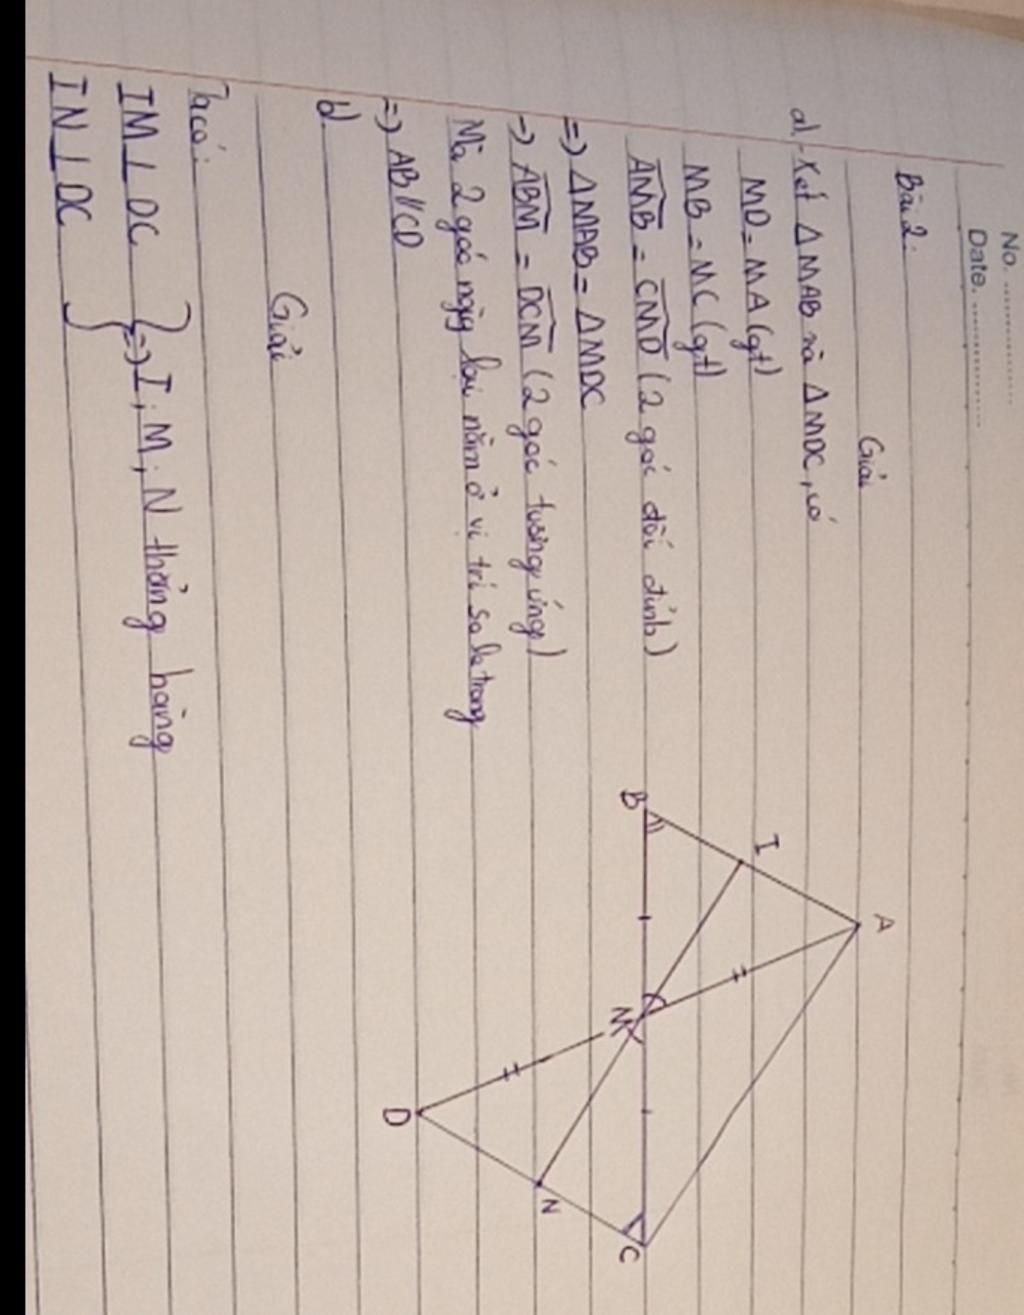 No. ................
Date. ................
Bài 2:
Giải
a) - Xét ΔMAB và ΔMDC, có
MD = MA (gt)
MB = MC (gt)
AMB = CMD (2 góc đối đỉnh)
=> ΔMAB = ΔMDC
-> ABM = DCM (2 góc tương ứng)
Mà 2 góc này lại nằm ở vị trí so le trong
=> AB // CD
b)
Giải
Ta có:
IM ⊥ DC
IN ⊥ DC
} => I; M; N thẳng hàng
A
I
B
M
C
N
D